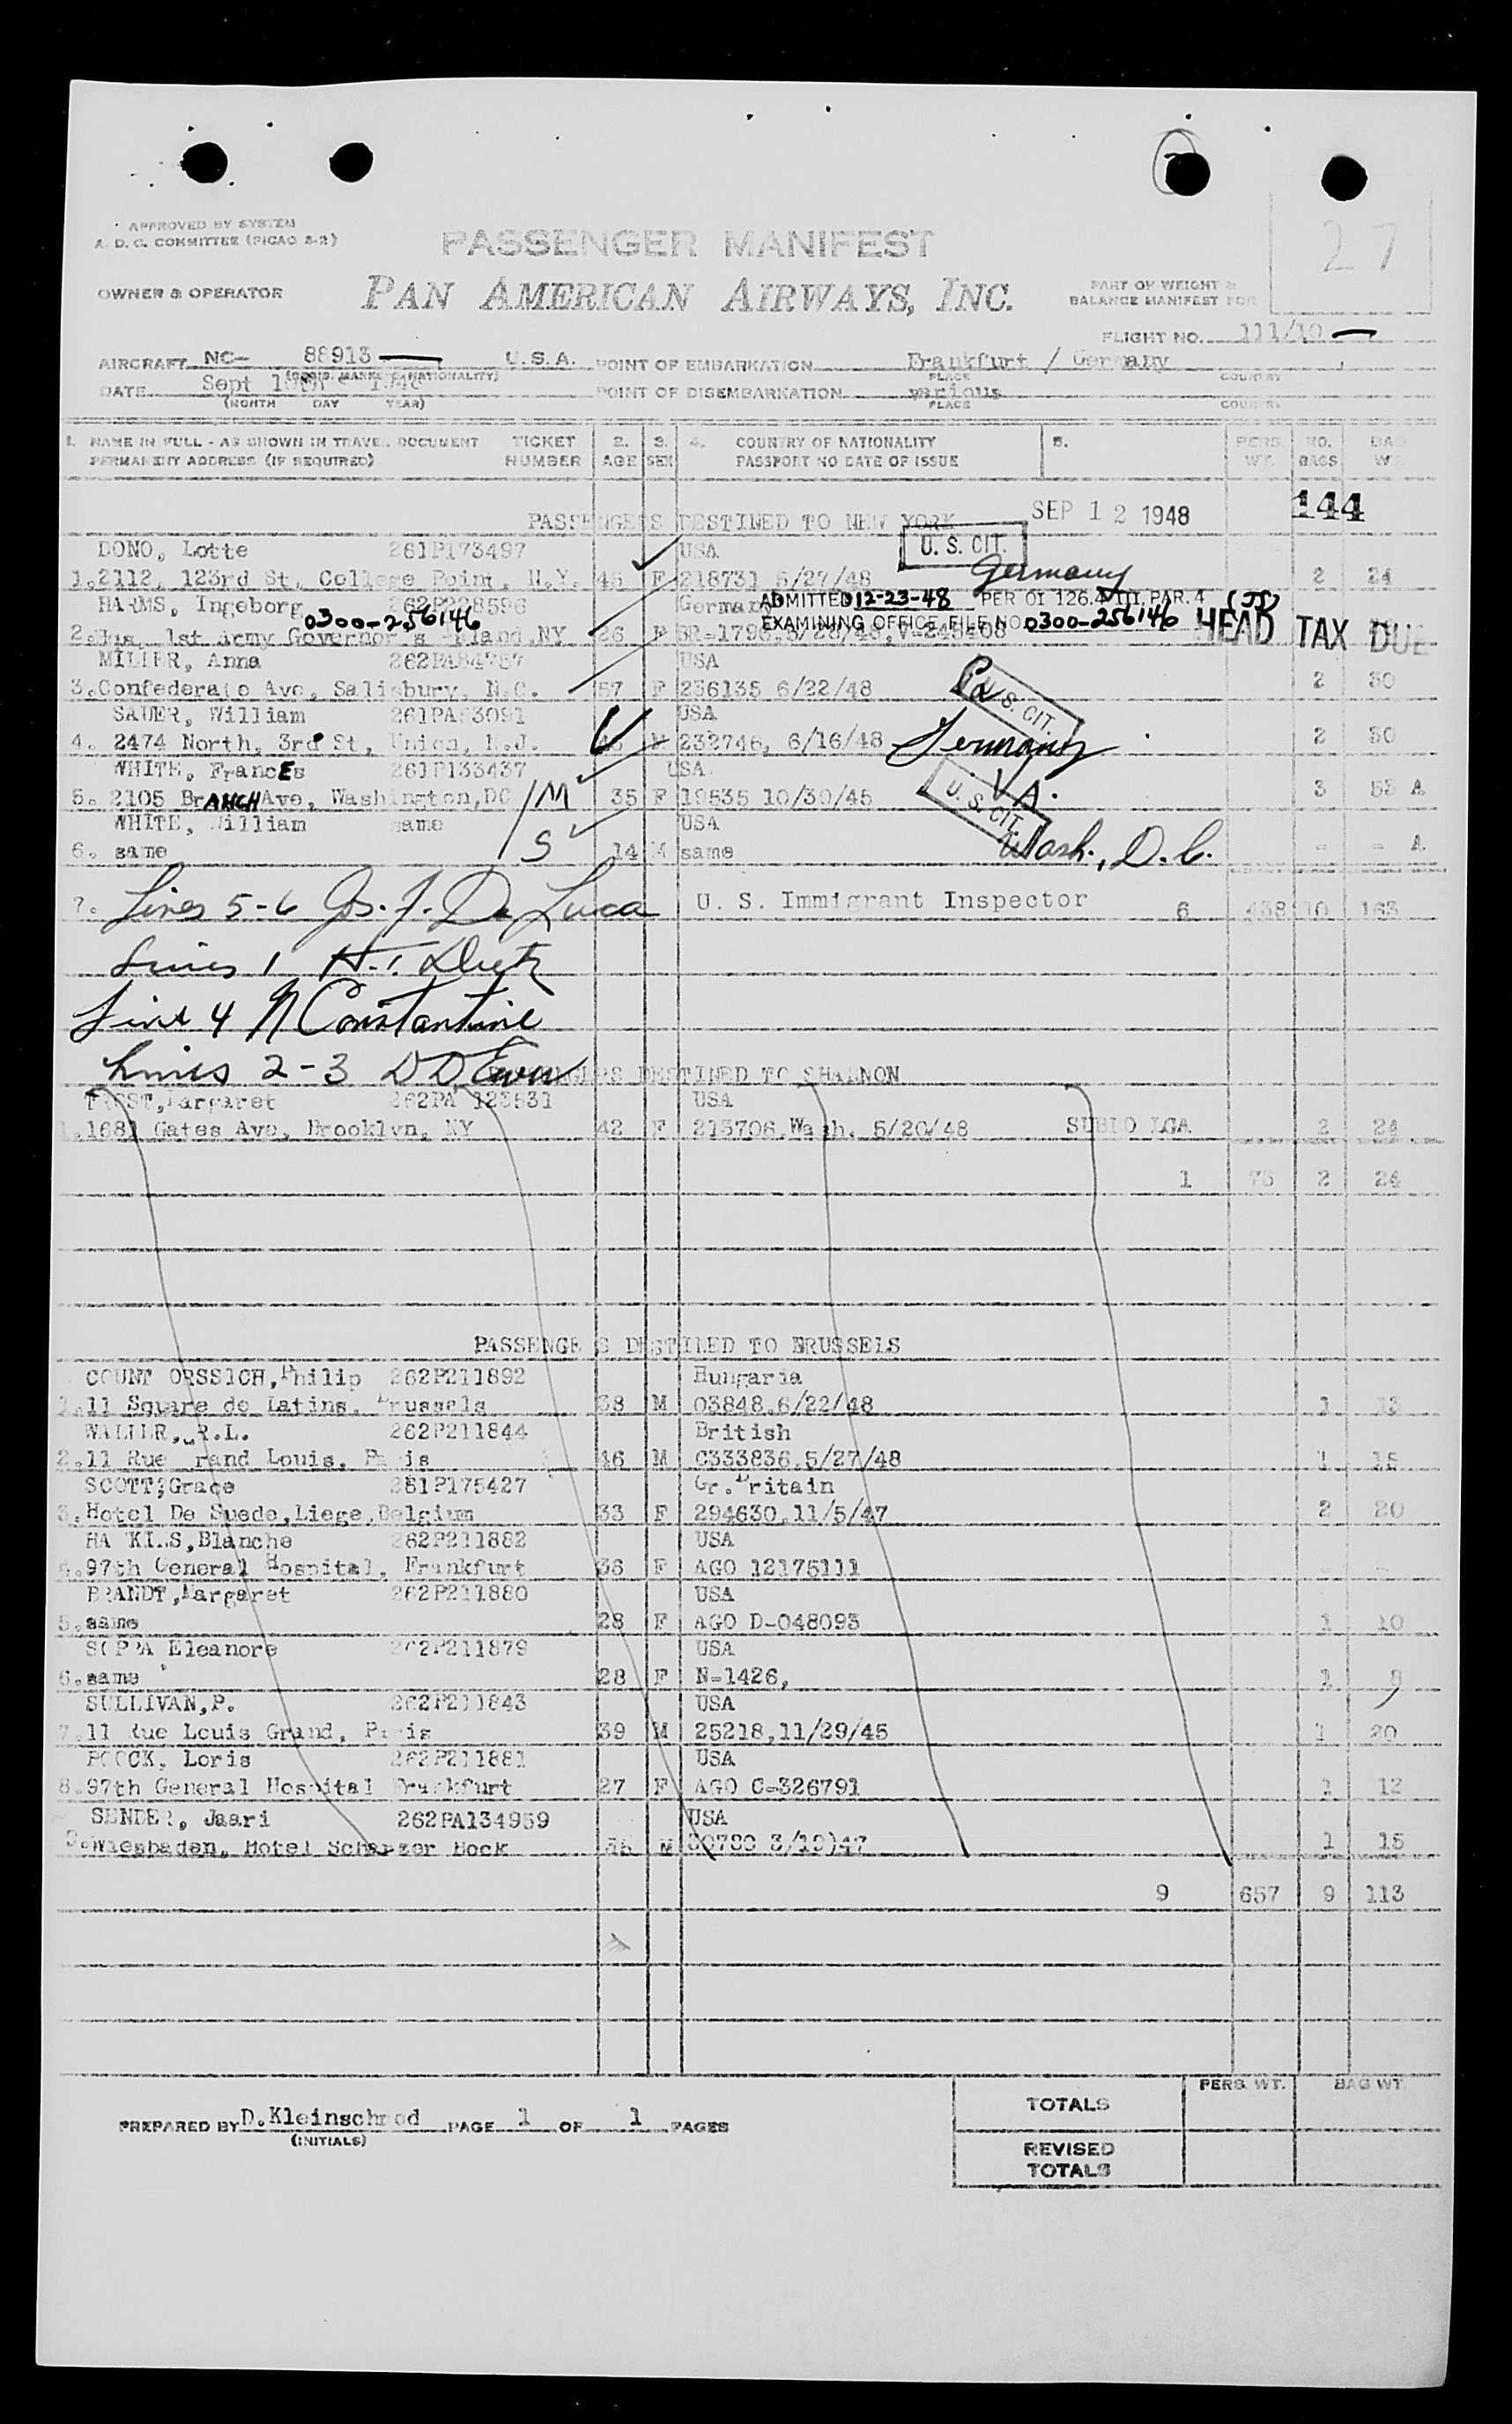 27
APPROVED BY SYSTEM
A. D. C. COMMITTEE (PICAO 3-2)
PASSENGER MANIFEST
OWNER & OPERATOR
PAN AMERICAN AIRWAYS, INC.
PART OF WEIGHT &
BALANCE MANIFEST FOR
FLIGHT NO. 111/10
AIRCRAFT NC- 88913 U.S.A. POINT OF EMBARKATION Frankfurt / Germany
PLACE COUNTRY
DATE Sept 10th POINT OF DISEMBARKATION various
(MONTH DAY YEAR) PLACE COUNTRY
1. NAME IN FULL - AS SHOWN IN TRAVEL DOCUMENT TICKET 2. 3. 4. COUNTRY OF NATIONALITY 5. PERS. NO. BAG
PERMANENT ADDRESS (IF REQUIRED) NUMBER AGE SEX PASSPORT NO DATE OF ISSUE WT. BAGS WT.
PASSENGERS DESTINED TO NEW YORK SEP 12 1948 144
DONO, Lotte 261P173497 USA U. S. CIT.
1. 2112, 123rd St, College Point, N.Y. 45 F 218731 5/27/48 Germany 2 24
HARMS, Ingeborg Germany ADMITTED 12-23-48 PER OI 126.4 PAR. 4 (JS)
0300-256146
2. 1st Army Governor's Island, NY 26 F EXAMINING OFFICE FILE NO. 0300-256146 HEAD TAX DUE
MILLER, Anna USA
3. Confederate Ave, Salisbury, N.C. 57 F 236135 6/22/48 U. S. CIT. 2 30
SAUER, William USA
4. 2474 North, 3rd St, Union, N.J. M 232746, 6/16/48 Germany 2 30
WHITE, FrancEs 261P133437 USA
5. 2105 BrANCH Ave, Washington, DC M 35 F 19835 10/30/45 U. S. CIT. 3 A
WHITE, William same USA
6. same S 14 M same Wash., D.C. - - A
7. Lines 5-6 Jos. J. De Luca U. S. Immigrant Inspector 6 438 10 163
Lines 1
Line 4 N Constantine
Lines 2-3
PASSENGERS DESTINED TO SHANNON
Margaret 262PA 123531 USA
1. 1681 Gates Ave, Brooklyn, NY 42 F 215706, Wash. 5/20/48 SUBLO LGA 2 24
1 73 2 24
PASSENGERS DESTINED TO BRUSSELS
COUNT ORSSICH, Philip 262P211892 Hungaria
1. 11 Square de Latins, Brussels 38 M 03848, 6/22/48 1
WALLER, R.L. 262P211844 British
2. 11 Rue Grand Louis, Paris 46 M C333836, 5/27/48 1 15
SCOTT, Grace 261P175427 Gr. Britain
3. Hotel De Suede, Liege, Belgium 33 F 294630, 11/5/47 2 20
Blanche 262P211882 USA
4. 97th General Hospital, Frankfurt 36 F AGO 12175111 - -
BRANDT, Margaret 262P211880 USA
5. same 28 F AGO D-048093 1 10
Eleanore 262P211879 USA
6. same 28 F N-1426, 1 9
SULLIVAN, P. 262P211843 USA
7. 11 Rue Louis Grand, Paris 39 M 25218, 11/29/45 1 20
POCOCK, Loris 262P211881 USA
8. 97th General Hospital Frankfurt 27 F AGO C-326791 1 12
SENDER, Jaari 262PA134959 USA
9. Wiesbaden, Hotel Schwarzer Bock M 1 15
9 657 9 113
TOTALS PERS. WT. BAG WT.
PREPARED BY D. Kleinschrod PAGE 1 OF 1 PAGES
(INITIALS)
REVISED
TOTALS